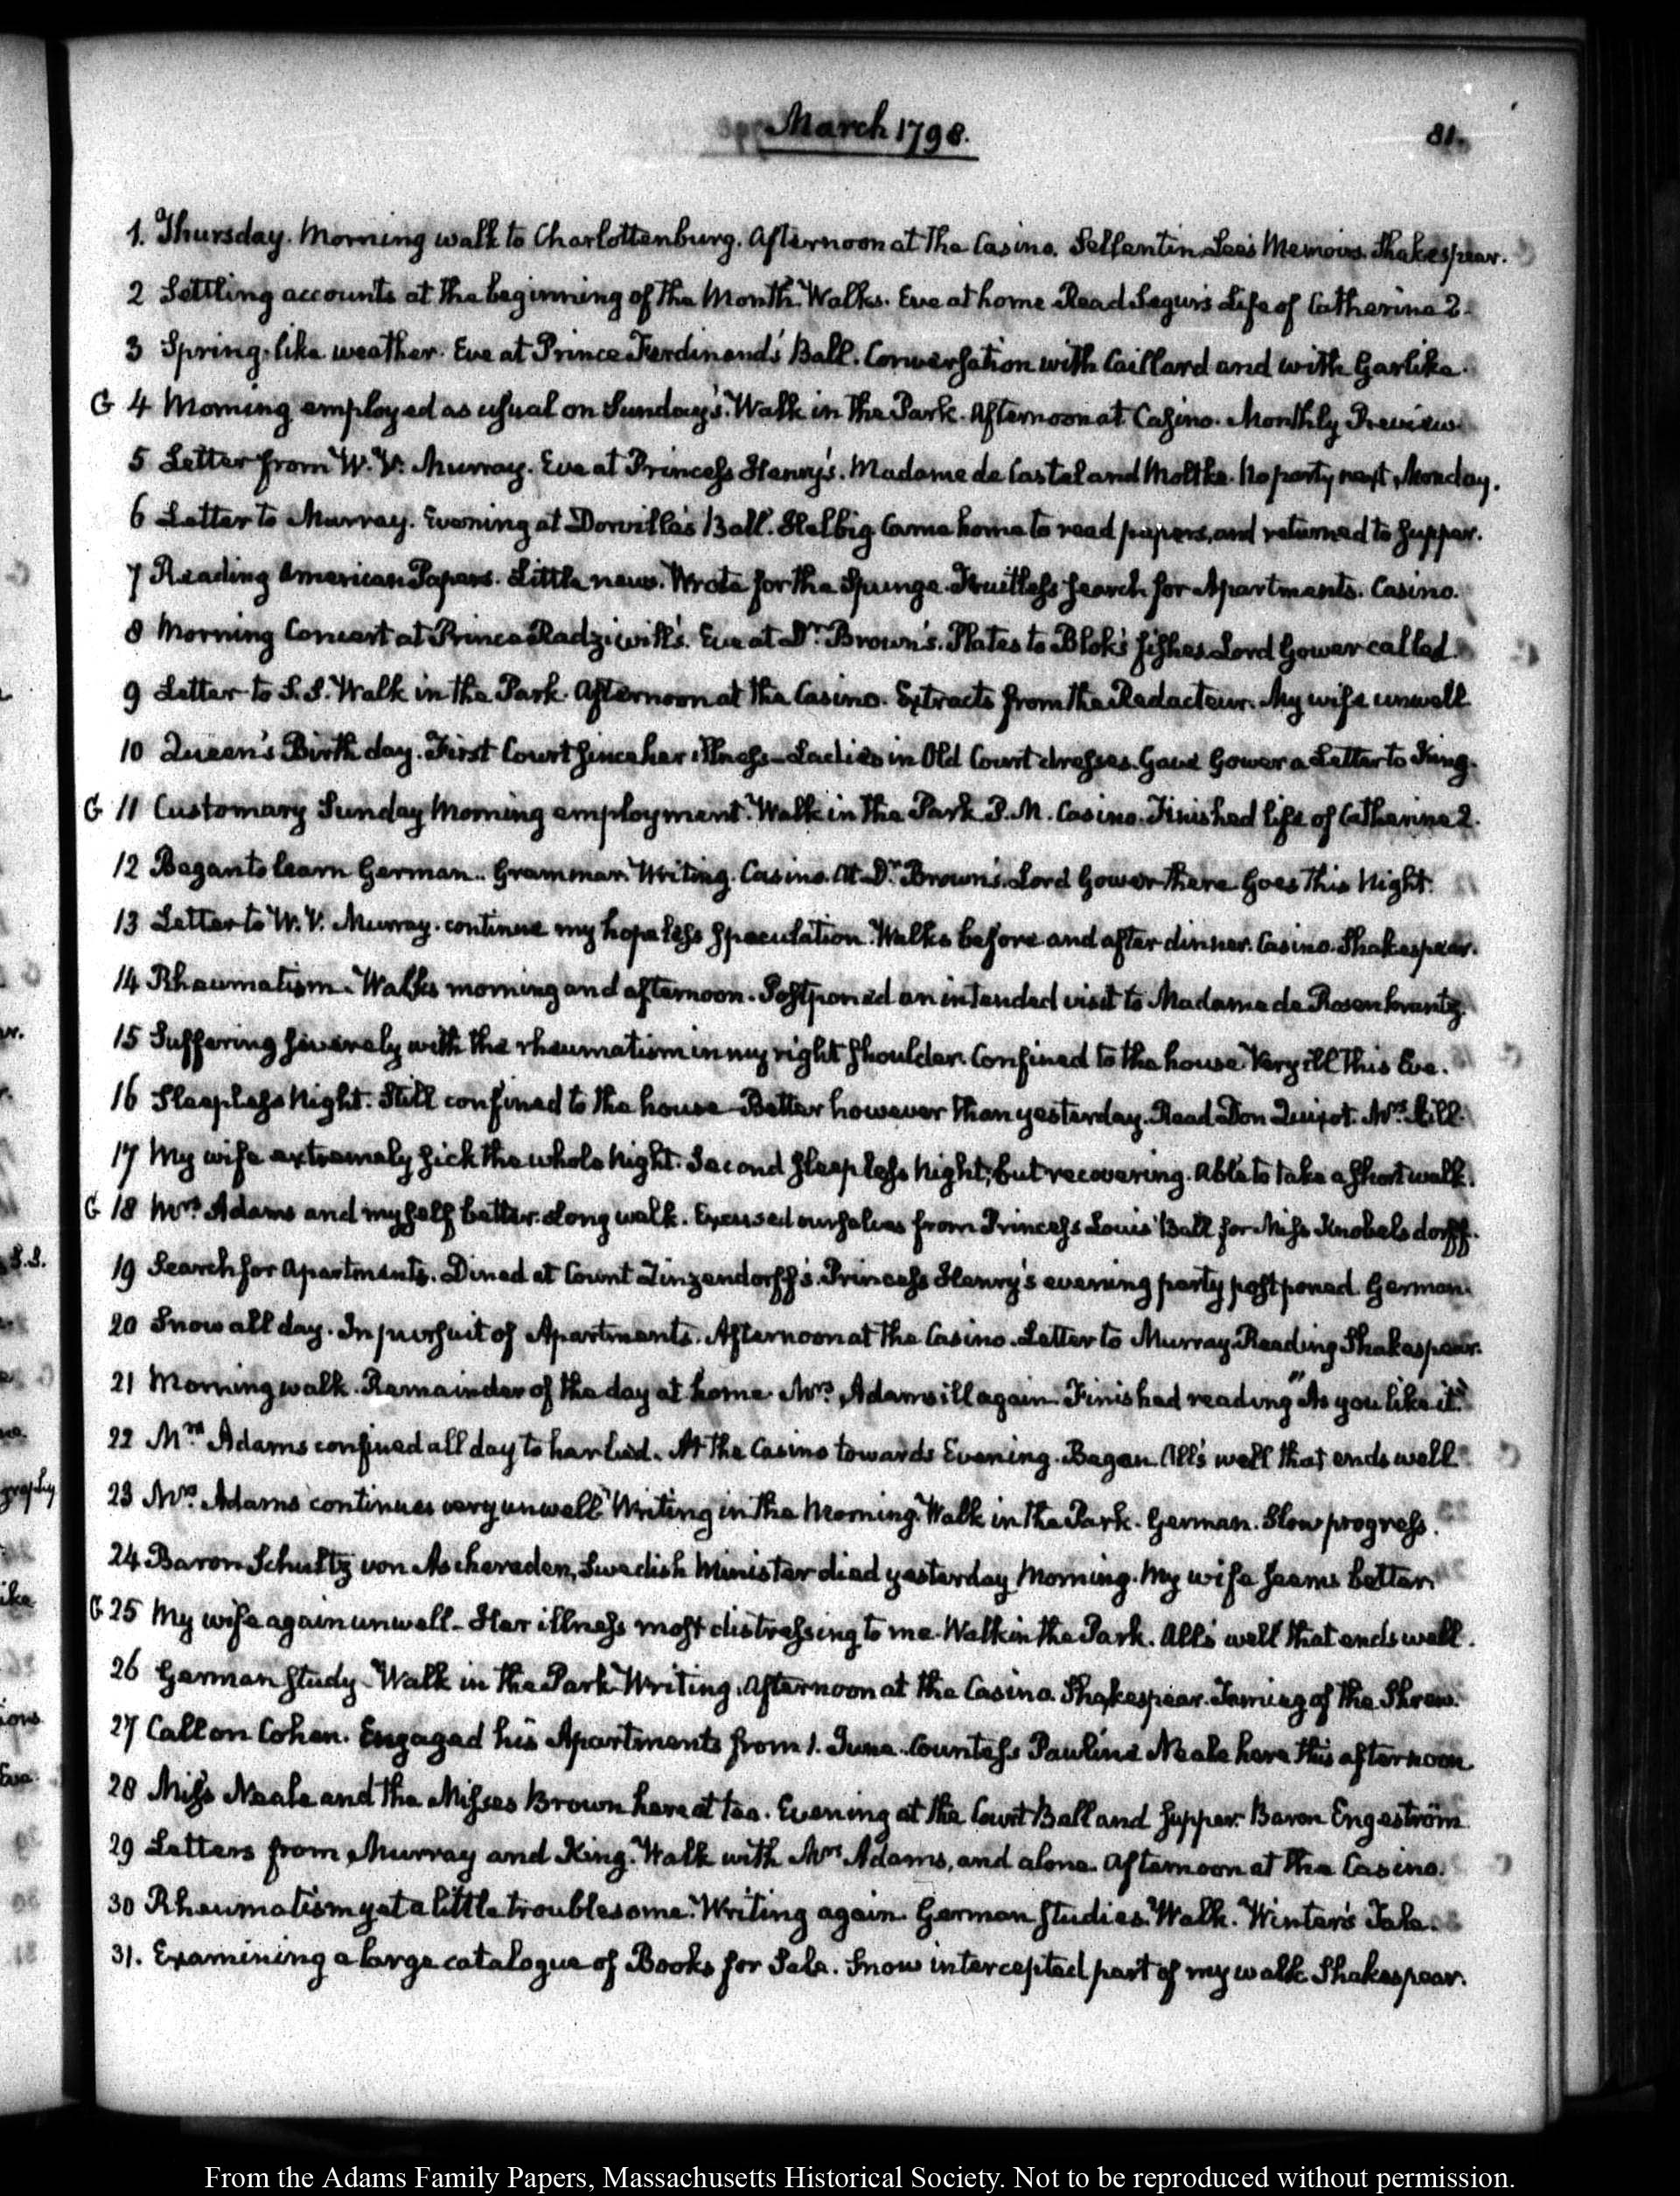 March 1798.
81.
1. Thursday. Morning walk to Charlottenburg. Afternoon at the Casino. Sellentin. Lee's Memoirs. Shakespear.
2 Settling accounts at the beginning of the Month. Walks. Eve at home. Read Segur's Life of Catherine 2.
3 Spring-like weather. Eve at Prince Ferdinand's Ball. Conversation with Caillard and with Garlike.
G 4 Morning employed as usual on Sunday's. Walk in the Park. Afternoon at Casino. Monthly Review
5 Letter from W. V. Murray. Eve at Princess Henry's. Madame de Castel and Moltke. No party next Monday.
6 Letter to Murray. Evening at Dorville's Ball. Helbig. Came home to read papers, and returned to supper.
7 Reading American Papers. Little news. Wrote for the Spunge. Fruitless search for Apartments. Casino.
8 Morning Concert at Prince Radziwill's. Eve at Dr. Brown's. Plates to Blok's fishes. Lord Gower called.
9 Letter to S.S. Walk in the Park. Afternoon at the Casino. Extracts from the Redacteur. My wife unwell
10 Queen's Birth day. First Court since her illness—Ladies in Old Court dresses. Gave Gower a Letter to King.
G 11 Customary Sunday Morning employment. Walk in the Park P.M. Casino. Finished life of Catherine 2.
12 Began to learn German.. Grammar. Writing. Casino. At Dr. Brown's. Lord Gower there Goes this Night.
13 Letter to W. V. Murray. continue my hopeless speculation. Walks before and after dinner. Casino. Shakespear.
14 Rheumatism. Walks morning and afternoon. Postponed an intended visit to Madame de Rosenkrantz.
15 Suffering severely with the rheumatism in my right shoulder. Confined to the house. Very ill this Eve.
16 Sleepless Night. Still confined to the house—Better however than yesterday. Read Don Quixot. Mrs. A ill.
17 My wife extremely sick the whole Night. Second sleepless Night; but recovering. Able to take a short walk.
G 18 Mrs. Adams and myself better. Long walk. Excused ourselves from Princess Louis' Ball for Miss Knobelsdorff.
19 Search for Apartments. Dined at Count Zinzendorff's. Princess Henry's evening party postponed. German.
20 Snow all day. In pursuit of Apartments. Afternoon at the Casino. Letter to Murray. Reading Shakespear.
21 Morning walk. Remainder of the day at home. Mrs. Adams ill again. Finished reading "As you like it."
22 Mrs. Adams confined all day to her bed. At the Casino towards Evening. Began All's well that ends well
23 Mrs. Adams continues very unwell. Writing in the Morning. Walk in the Park. German. Slow progress.
24 Baron Schultz von Ascheraden, Swedish Minister died yesterday Morning. My wife seems better.
G 25 My wife again unwell—Her illness most distressing to me. Walk in the Park. All's well that ends well.
26 German study. Walk in the Park. Writing. Afternoon at the Casino. Shakespear. Taming of the Shrew.
27 Call on Cohen. Engaged his Apartments from 1. June. Countess Pauline Neale here this afternoon
28 Miss Neale and the Misses Brown here at tea. Evening at the Court Ball and supper. Baron Engeström.
29 Letters from Murray and King. Walk with Mrs. Adams, and alone. Afternoon at the Casino.
30 Rheumatism yet a little troublesome. Writing again. German studies. Walk. Winter's Tale.
31. Examining a large catalogue of Books for Sale. Snow intercepted part of my walk. Shakespear.
From the Adams Family Papers, Massachusetts Historical Society. Not to be reproduced without permission.